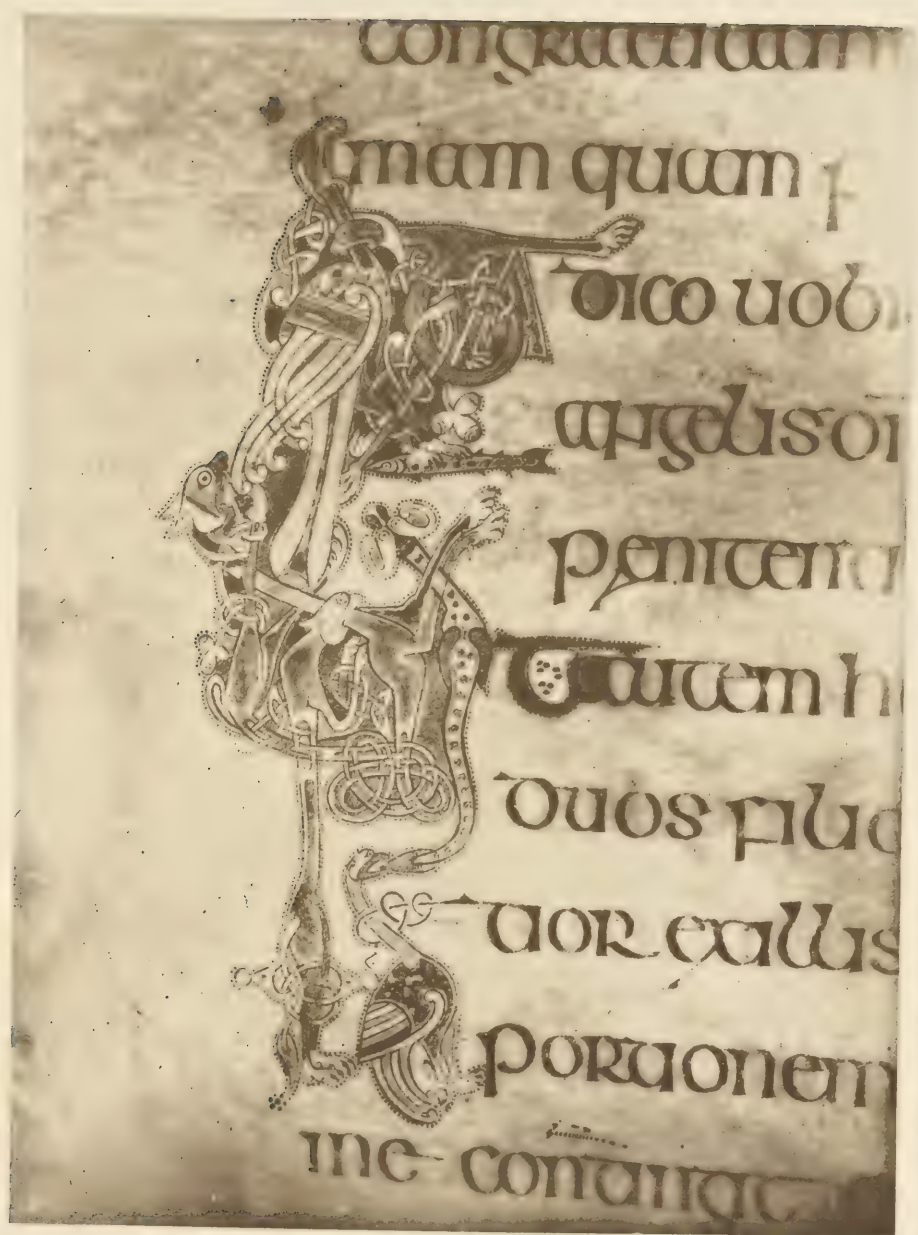 congratulam
mam quam p
dico uobi
angelis
penitenti
t autem h
duos filio
tior exillis
portionem
me contingit